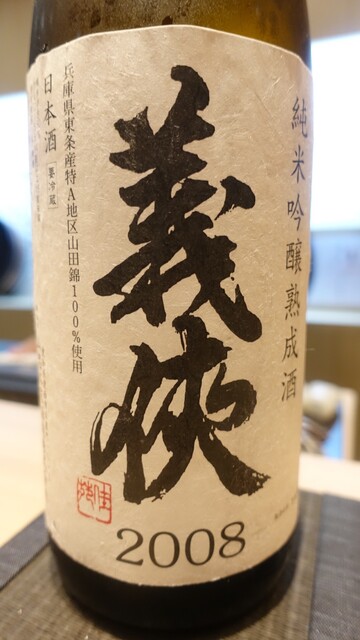 純米吟醸熟成酒
義侠
兵庫県東条産特A地区山田錦100%使用
日本酒
[要冷蔵]
2008